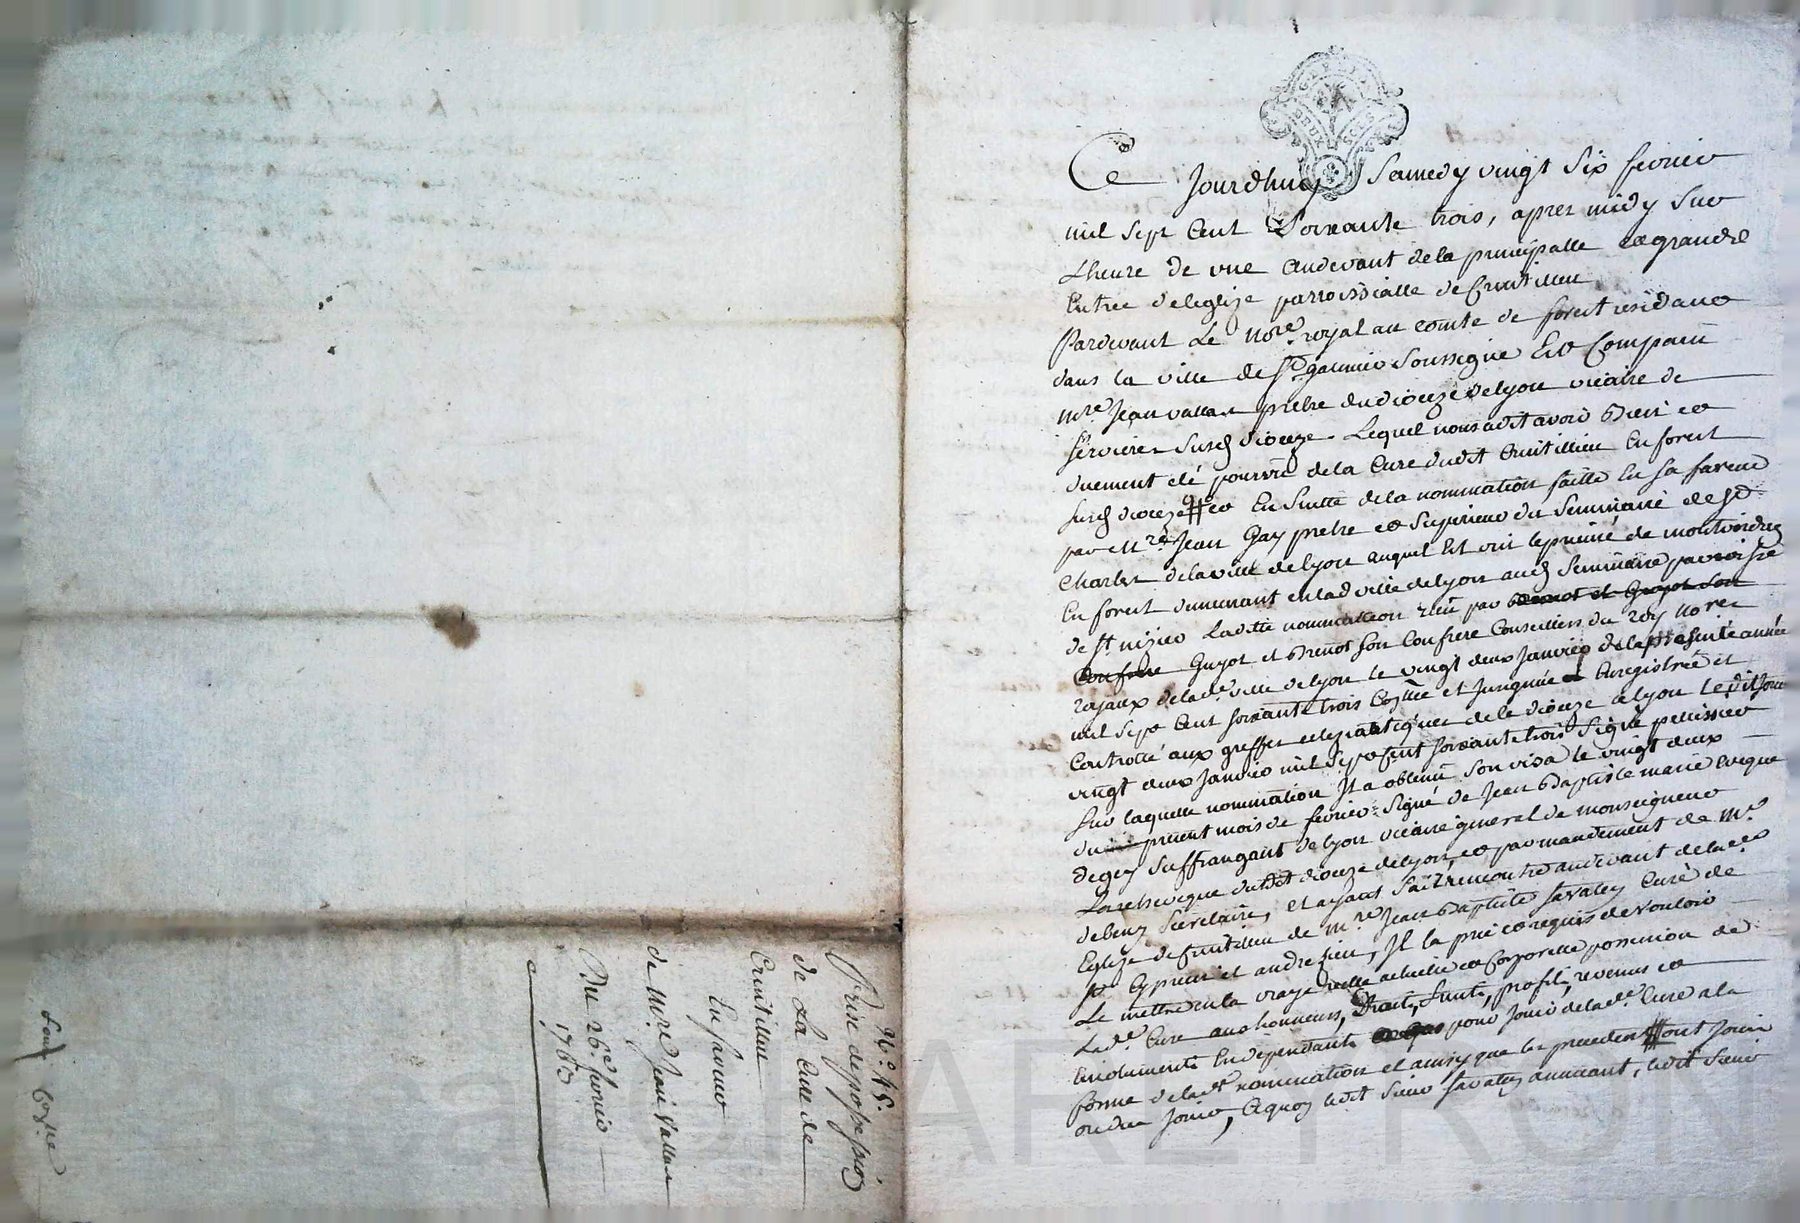 Ce Jourdhuy Samedy vingt Six fevrier
mil Sept Cent Soixante trois, apres midy Sur
L'heure de une Audevant de la principalle et grande
Entree de leglize parroissialle de Cruitillieu
Pardevant Le Nore. royal au comte de forest residant
dans la ville de St. galmier Soussigné Est Comparu
mre Jean vallas prestre du dioceze de lyon vicaire de
Servieres Susd dioceze. Lequel nous a dit avoir Bien et
duement eté pourvû de la Cure dudit Cruitillieu En forest
Susd dioceze et En Suitte de la nomination faitte En Sa faveur
par Mre. Jean Gay prestre et Superieur du Seminaire de St.
Charles de la ville de lyon auquel Est uni le prieuré de
En forest demeurant en lad ville de lyon aud Seminaire parroisse
de St. nizier Laditte nomination par
Guyot et Brenot Son Confrere Conseillers du Roy Nores
royaux de lade. ville de lyon le vingt deux Janvier de la presente année
mil Sept Cent Soixante trois et Enregistrée et
Controllé aux greffes eclesiastiques de le dioceze de lyon Le dit Jour
vingt deux Janvier mil Sept Cent Soixante trois Signé pelissier
Sur laquelle nomination Il a obtenu Son visa le vingt deux
du present mois de fevrier Signé de Jean Baptiste marie Eveque
Suffrangant de lyon vicaire general de monseigneur
L'archeveque dudit dioceze de lyon, et par mandement de Mr.
Secretaire, et ayant fait rencontre audevant de lade
Eglize de Cruitillieu de Mre Jean Baptiste Curé de
St. Cyprien et andrezieu, Il la prié et requis de vouloir
Le mettre en la vraye reelle actuelle et Corporelle possession de
Lade. Cure aux honneurs, Droits, fruits, profits, revenus et
Emoluments En dependants pour Jouir de lade. Cure a la
forme de lade nomination et ainsy que les precedents ont Joui
ou du Jouir, a quoy ledit Sieur annuant, ledit Sieur
No. 45.
Prise de possession
de La Cure de
Cruitillieu
En faveur
de Mre Jean Vallas
Du 26e. fevrier
1763